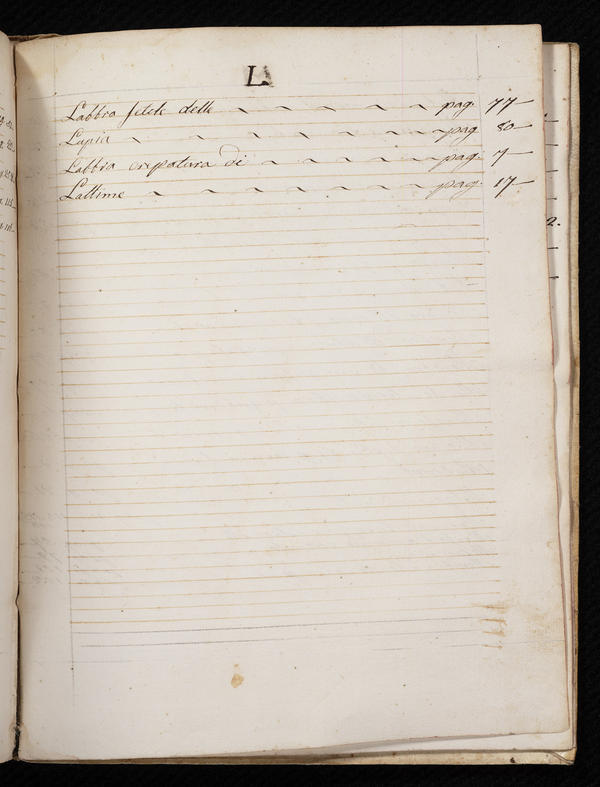 L.
Labbra delle ~ ~ ~ ~ ~ ~ pag. 77
Lupia ~ ~ ~ ~ ~ ~ ~ pag 80
Labbra crepatura di ~ ~ ~ ~ ~ pag. 7
Lattime ~ ~ ~ ~ ~ ~ ~ pag. 17
2.